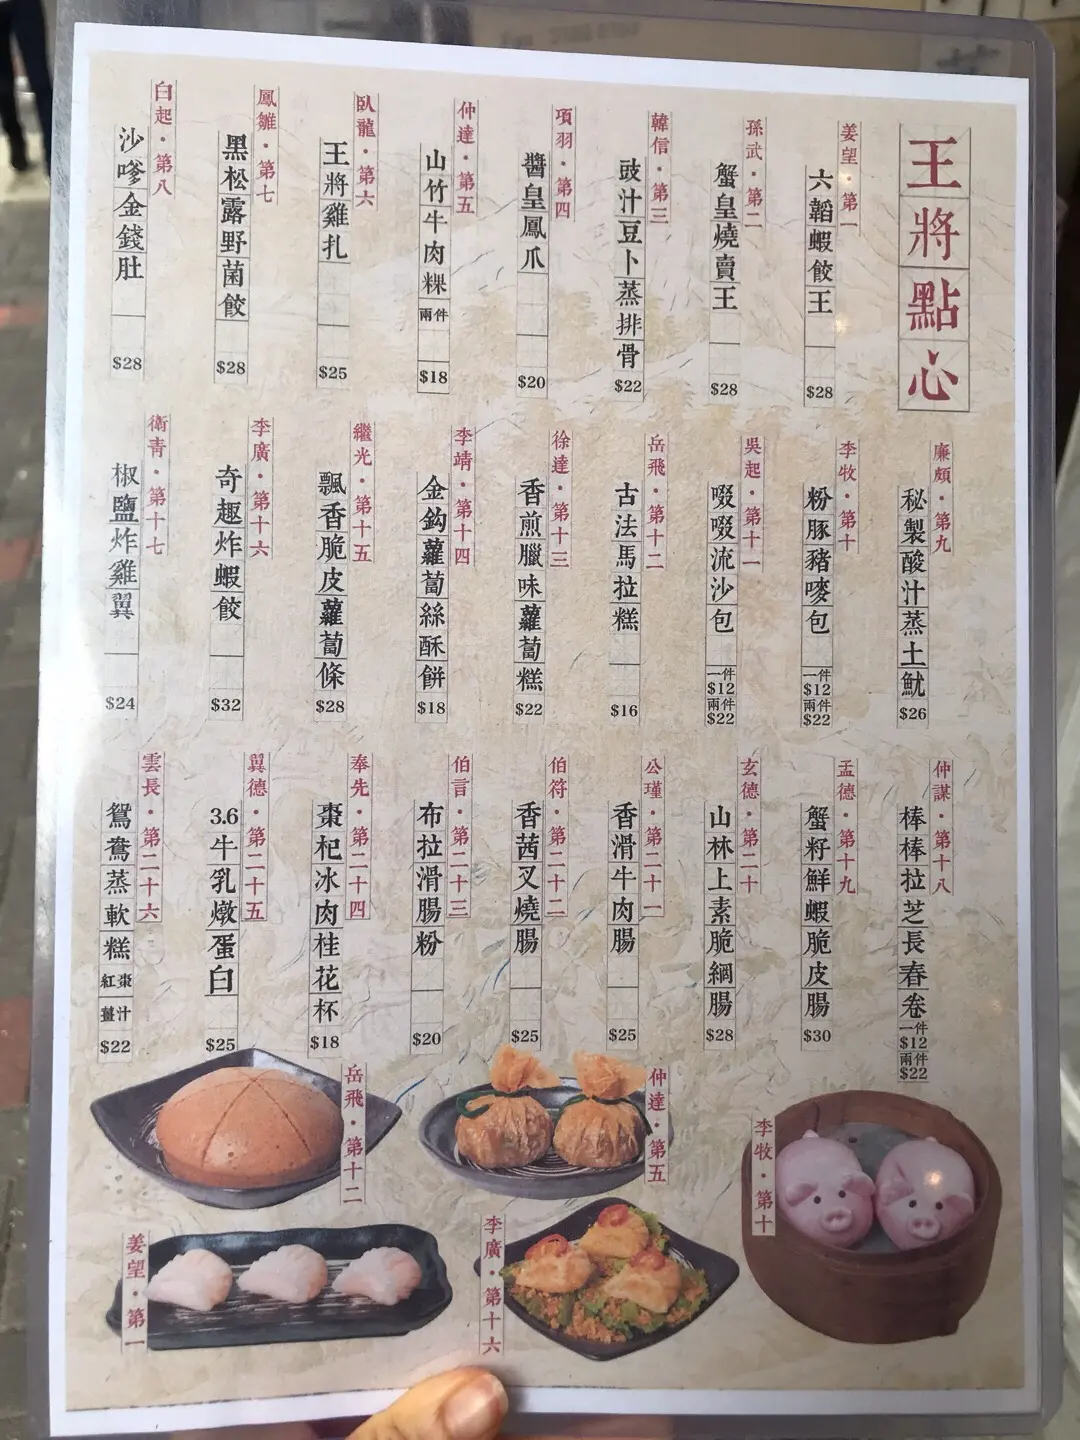 王將點心
姜望・第一
六韜蝦餃王
$28
孫武・第二
蟹皇燒賣王
$28
韓信・第三
豉汁豆卜蒸排骨
$22
項羽・第四
醬皇鳳爪
$20
仲達・第五
山竹牛肉粿 兩件
$18
臥龍・第六
王將雞扎
$25
鳳雛・第七
黑松露野菌餃
$28
白起・第八
沙嗲金錢肚
$28
廉頗・第九
秘製酸汁蒸土魷
$26
李牧・第十
粉豚豬嘜包
一件
$12
兩件
$22
吳起・第十一
啜啜流沙包
一件
$12
兩件
$22
岳飛・第十二
古法馬拉糕
$16
徐達・第十三
香煎臘味蘿蔔糕
$22
李靖・第十四
金鈎蘿蔔絲酥餅
$18
繼光・第十五
飄香脆皮蘿蔔條
$28
李廣・第十六
奇趣炸蝦餃
$32
衛青・第十七
椒鹽炸雞翼
$24
仲謀・第十八
棒棒拉芝長春卷
一件
$12
兩件
$22
孟德・第十九
蟹籽鮮蝦脆皮腸
$30
玄德・第二十
山林上素脆網腸
$28
公瑾・第二十一
香滑牛肉腸
$25
伯符・第二十二
香茜叉燒腸
$25
伯言・第二十三
布拉滑腸粉
$20
奉先・第二十四
棗杞冰肉桂花杯
$18
翼德・第二十五
3.6牛乳燉蛋白
$25
雲長・第二十六
鴛鴦蒸軟糕
紅棗
薑汁
$22
岳飛・第十二
仲達・第五
李牧・第十
姜望・第一
李廣・第十六